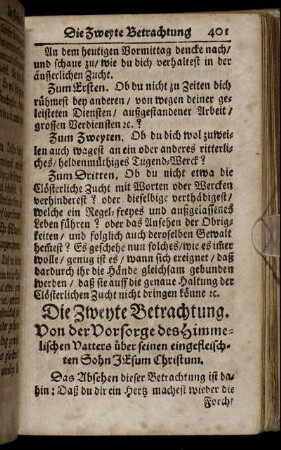 Die Zweyte Betrachtung 401
An dem heutigen Vormittag dencke nach/
und schaue zu/ wie du dich verhaltest in der
äusserlichen Zucht.
Zum Ersten. Ob du nicht zu Zeiten dich
rühmest bey anderen / von wegen deiner ge-
leisteten Diensten/ außgestandener Arbeit/
grossen Verdiensten ꝛc. ?
Zum Zweyten. Ob du dich wol zuwei-
len auch wagest an ein oder anderes ritterli-
ches/ heldenmüthiges Tugend-Werck ?
Zum Dritten. Ob du nicht etwa die
Clösterliche Zucht mit Worten oder Wercken
verhinderest ? oder dieselbige verthädigest/
welche ein Regel-freyes und außgelassenes
Leben führen ? oder das Ansehen der Obrig-
keiten / und folglich auch deroselben Gewalt
hemest ? Es geschehe nun solches/wie es imer
wolle/ genug ist es / wann sich ereignet / daß
dardurch ihr die Hände gleichsam gebunden
werden / daß sie auff die genaue Haltung der
Clösterlichen Zucht nicht dringen könne ꝛc.
Die Zweyte Betrachtung.
Von der Vorsorge des Himme-
lischen Vatters über seinen eingefleisch-
ten Sohn JEsum Christum.
Das Absehen dieser Betrachtung ist da-
hin: Daß du dir ein Hertz machest wieder die
Forcht